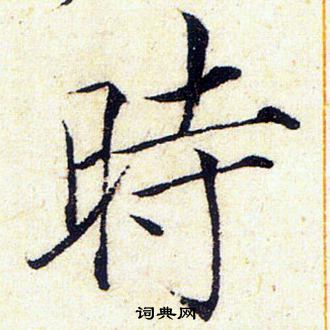 時
词典网